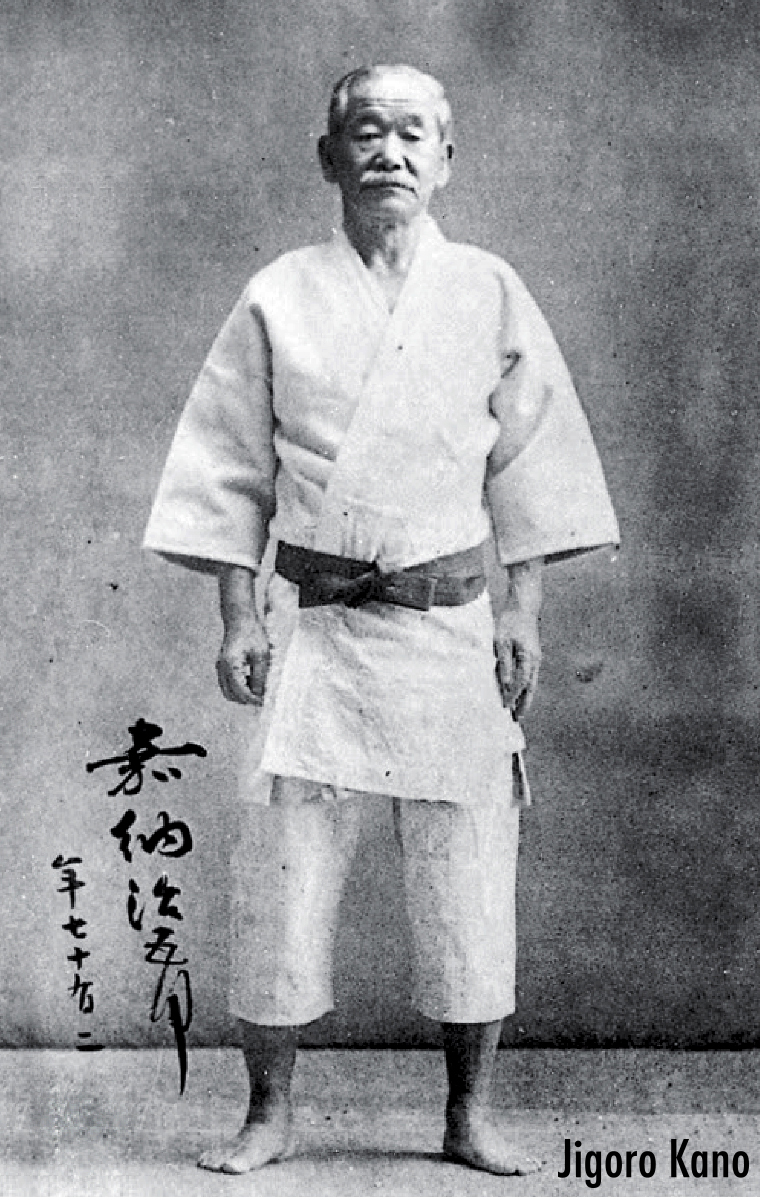 嘉納治五郎
年七十有二
Jigoro Kano